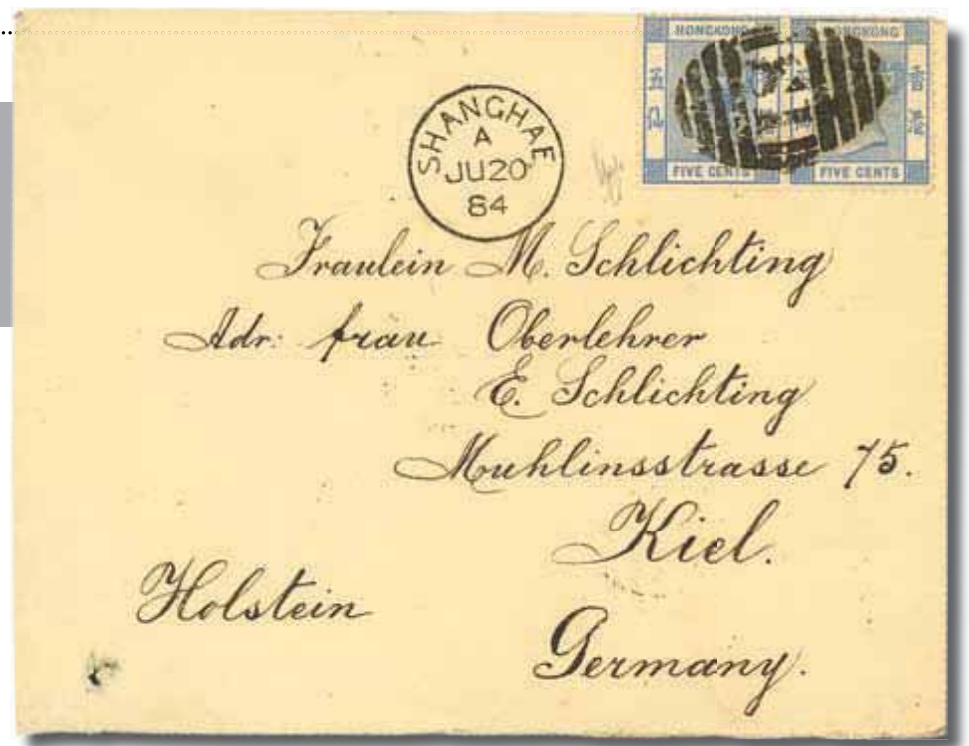 HONGKONG HONGKONG
五仙 香港
FIVE CENTS FIVE CENTS
SHANGHAE
A
JU20
84
Fraulein M. Schlichting
Adr: frau Oberlehrer
E. Schlichting
Muhlinsstrasse 75.
Kiel.
Holstein
Germany.